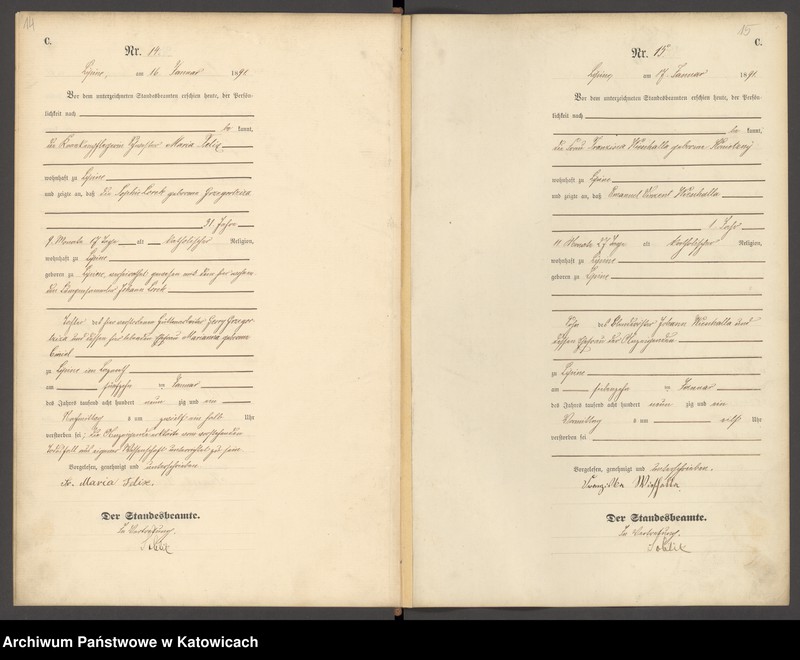 14
C.
Nr. 14.
Lipine, am 16. Januar 1891.
Vor dem unterzeichneten Standesbeamten erschien heute, der Persön-
lichkeit nach
be kannt,
die Krankenpflegerin Schwester Maria Felix
wohnhaft zu Lipine
und zeigte an, daß die Sophie geborene
31 Jahre
9 Monate 17 Tage alt katholischer Religion,
wohnhaft zu Lipine
geboren zu Lipine, verheirathet gewesen mit dem
Johann
Tochter des verstorbenen Hüttenarbeiter Georg
und dessen Ehefrau Marianna geborene
zu Lipine im Lazareth
am fünfzehn ten Januar
des Jahres tausend acht hundert neun zig und ein
Nachmittag s um zwölf ein halb Uhr
verstorben sei; die Anzeigende erklärte vom vorstehenden
Todesfall aus eigener Wissenschaft unterrichtet zu sein
Vorgelesen, genehmigt und unterschrieben
Sr. Maria Felix.
Der Standesbeamte.
In Vertretung.
15
C.
Nr. 15.
Lipine, am 17. Januar 1891.
Vor dem unterzeichneten Standesbeamten erschien heute, der Persön-
lichkeit nach
be kannt,
die Frau Franziska geborene
wohnhaft zu Lipine
und zeigte an, daß Emanuel Vincent
1 Jahr
11 Monate 27 Tage alt katholischer Religion,
wohnhaft zu Lipine
geboren zu Lipine
Sohn des Johann und
dessen Ehefrau der Anzeigenden
zu Lipine
am siebenzehn ten Januar
des Jahres tausend acht hundert neun zig und ein
Vormittag s um Uhr
verstorben sei
Vorgelesen, genehmigt und unterschrieben.
Franziska
Der Standesbeamte.
In Vertretung.
Archiwum Państwowe w Katowicach